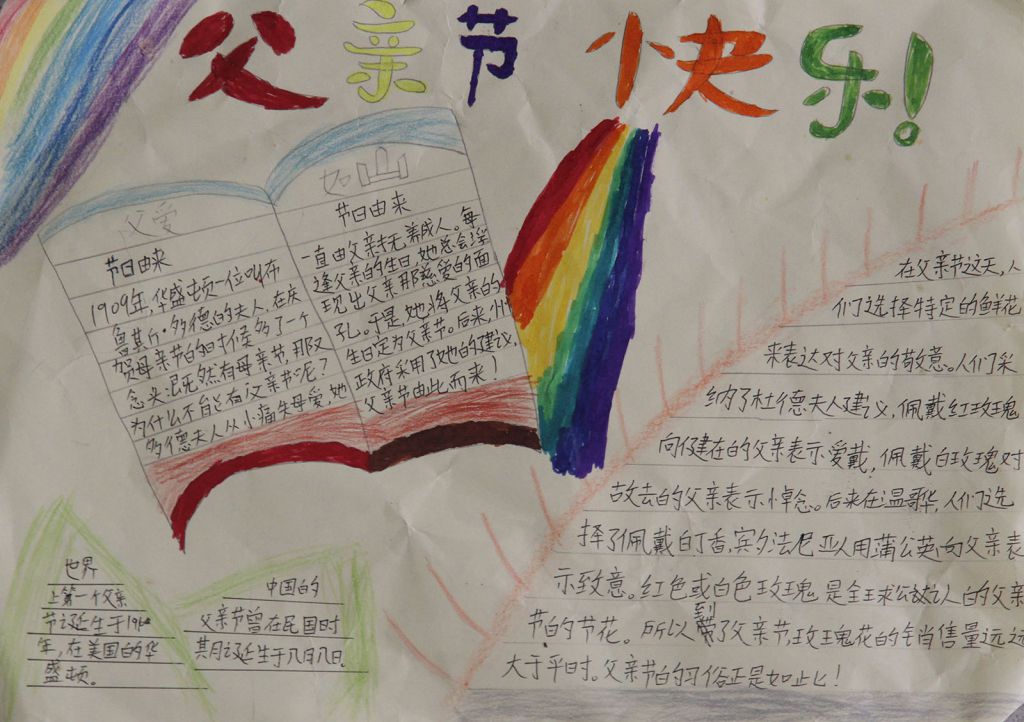 父亲节快乐!
父爱
节日由来
1909年,华盛顿一位叫布
鲁其斤·多德的夫人,在庆
贺母亲节的时候多了一个
念头:既然有母亲节,那又
为什么不能有父亲节呢?
多德夫人从小痛失母爱,她
如山
节日由来
一直由父亲抚养成人。每
逢父亲的生日,她总会浮
现出父亲那慈爱的面
孔。于是,她将父亲的
生日定为父亲节。后来,州
政府采用了她的建议,
父亲节由此而来!
在父亲节这天,人
们选择特定的鲜花
来表达对父亲的敬意。人们采
纳了杜德夫人建议,佩戴红玫瑰
向健在的父亲表示爱戴,佩戴白玫瑰对
故去的父亲表示悼念。后来在温哥华,人们选
择了佩戴白丁香,宾夕法尼亚人用蒲公英向父亲表
示致意。红色或白色玫瑰是全球公认的父亲
节的节花。所以到了父亲节玫瑰花的销售量远远
大于平时。父亲节的习俗正是如此!
世界
上第一个父亲
节诞生于19
年,在美国的华
盛顿。
中国的
父亲节曾在民国时
期月诞生于八月八日.